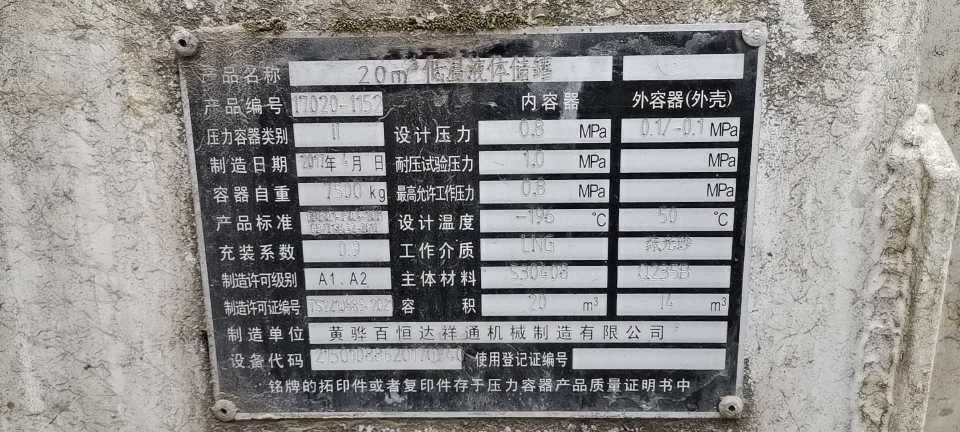 产品名称 20m³低温液体储罐
产品编号 17020-1152 内容器 外容器(外壳)
压力容器类别 II 设计压力 0.8 MPa 0.1/-0.1 MPa
制造日期 2017年 月 日 耐压试验压力 1.0 MPa MPa
容器自重 kg 最高允许工作压力 0.8 MPa MPa
产品标准 设计温度 -196 ℃ 50 ℃
充装系数 0.9 工作介质 LNG 珠光砂
制造许可级别 A1.A2 主体材料 S30408 Q235B
制造许可证编号 容积 20 m³ 14 m³
制造单位 黄骅百恒达祥通机械制造有限公司
设备代码 使用登记证编号
铭牌的拓印件或者复印件存于压力容器产品质量证明书中